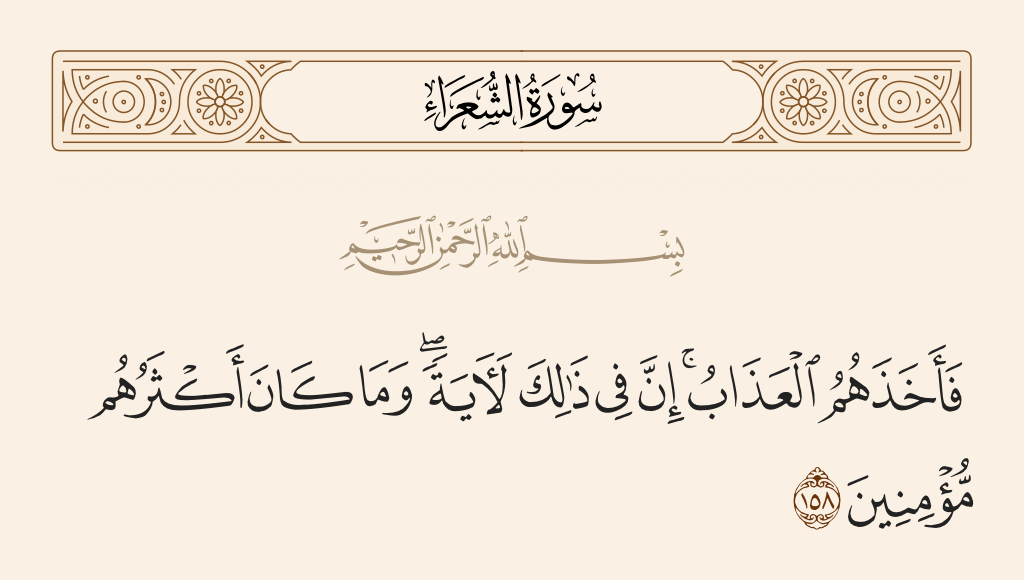 سُورَةُ الشُّعَرَاءِ
بِسْمِ ٱللَّهِ ٱلرَّحْمَٰنِ ٱلرَّحِيمِ
فَأَخَذَهُمُ ٱلْعَذَابُ ۚ إِنَّ فِى ذَٰلِكَ لَـَٔايَةً ۖ وَمَا كَانَ أَكْثَرُهُم
مُّؤْمِنِينَ ١٥٨